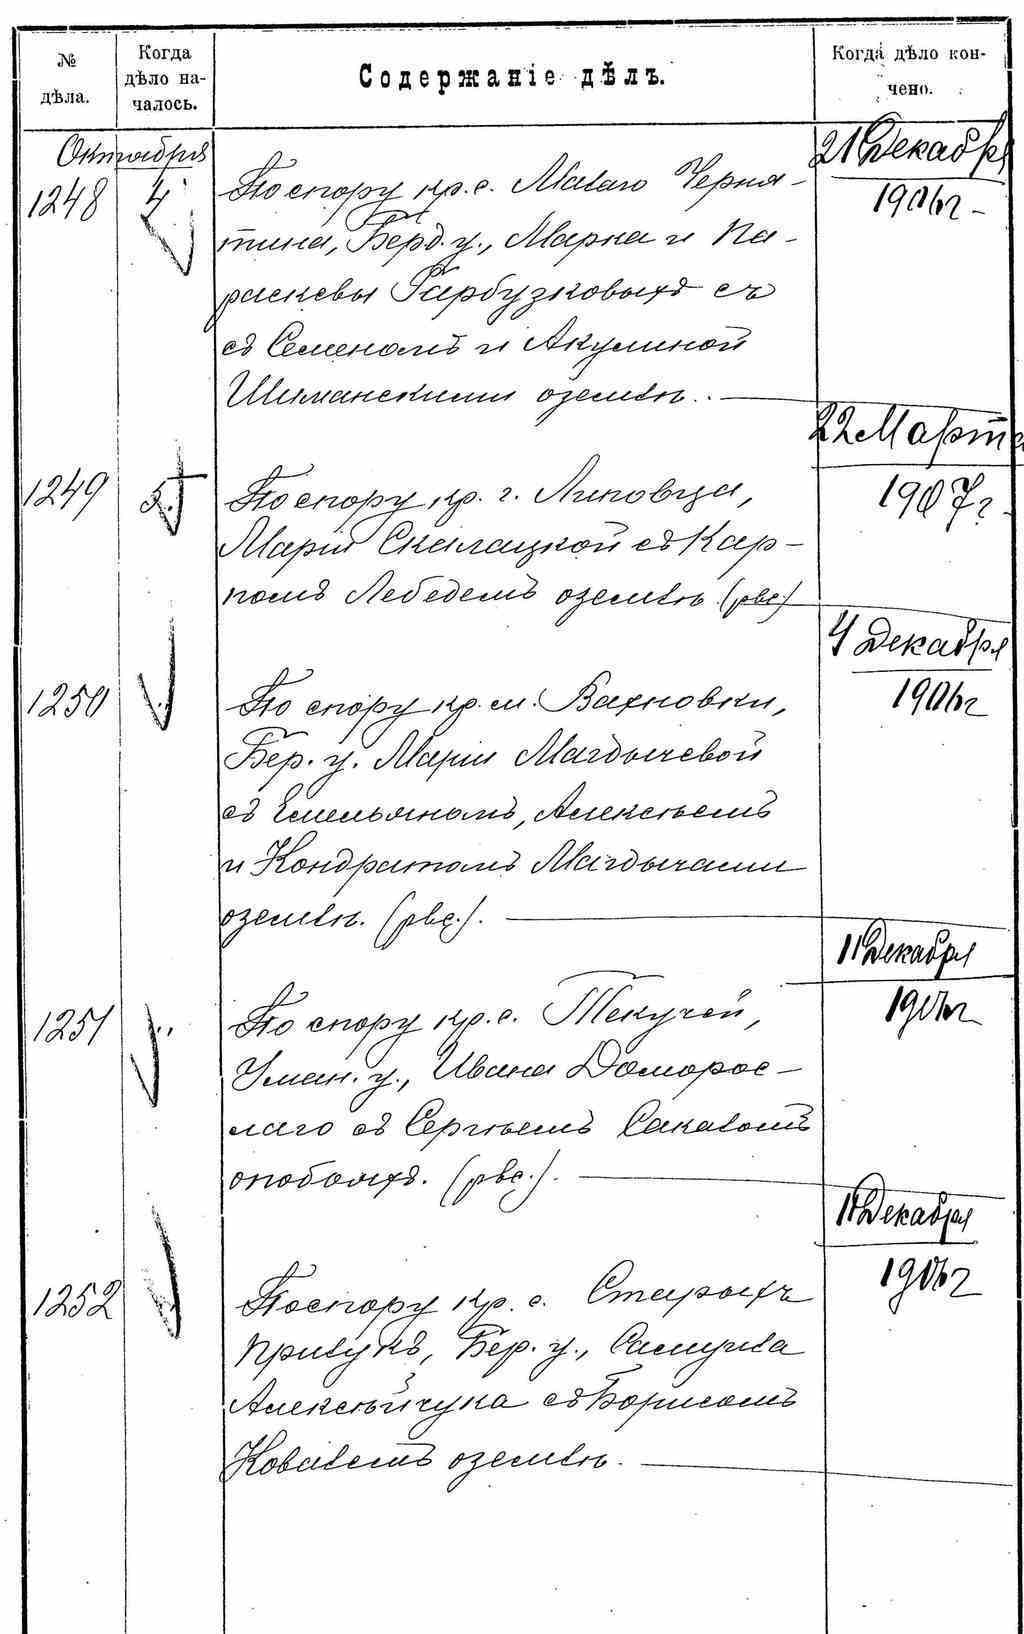 № дѣла.
Когда дѣло на-
чалось.
Содержаніе дѣлъ.
Когда дѣло кон-
чено.
Октября
1248 4
По спору кр. с. Малаго Черня-
тина, Берд. у., Марка и Па-
раскевы Гарбузковыхъ съ
съ Семеномъ и Акулиной
Шиманскими о землѣ.
21 Декабря
1906 г.
1249 5.
По спору кр. г. Липовца,
Маріи Скалацкой съ Кар-
помъ Лебедемъ о землѣ. (рвс.)
22 Марта
1907 г.
1250
По спору кр. м. Вахновки,
Бер. у. Маріи Магдычевой
съ Емельяномъ, Алексѣемъ
и Кондратомъ Магдычами
о землѣ. (рвс.).
4 Декабря
1906 г
1251
По спору кр. с. Текучей,
Уман. у., Ивана Доморос-
лаго съ Сергѣемъ Сакаломъ
о побояхъ. (рвс.).
11 Декабря
190 г
1252
По спору кр. с. Старыхъ
Прилукъ, Бер. у., Самуила
Алексѣйчука съ Борисомъ
Ковалемъ о землѣ.
11 Декабря
1906 г